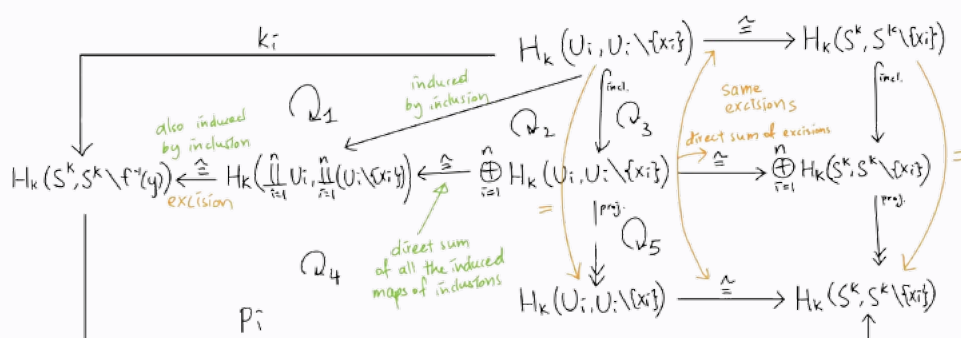 kᵢ
Hₖ(Uᵢ, Uᵢ\{xᵢ}) ≅ Hₖ(Sᵏ, Sᵏ\{xᵢ})
induced
by inclusion
incl.
incl.
same
excisions
1
2
3
also induced
by inclusion
direct sum of excisions
=
Hₖ(Sᵏ, Sᵏ\f⁻¹(y)) ≅ Hₖ(∐ⁿᵢ₌₁ Uᵢ, ∐ⁿᵢ₌₁(Uᵢ\{xᵢ})) ≅ ⊕ⁿᵢ₌₁ Hₖ(Uᵢ, Uᵢ\{xᵢ}) ≅ ⊕ⁿᵢ₌₁ Hₖ(Sᵏ, Sᵏ\{xᵢ})
excision
=
proj.
proj.
direct sum
of all the induced
maps of inclusions
4
5
Hₖ(Uᵢ, Uᵢ\{xᵢ}) ≅ Hₖ(Sᵏ, Sᵏ\{xᵢ})
pᵢ